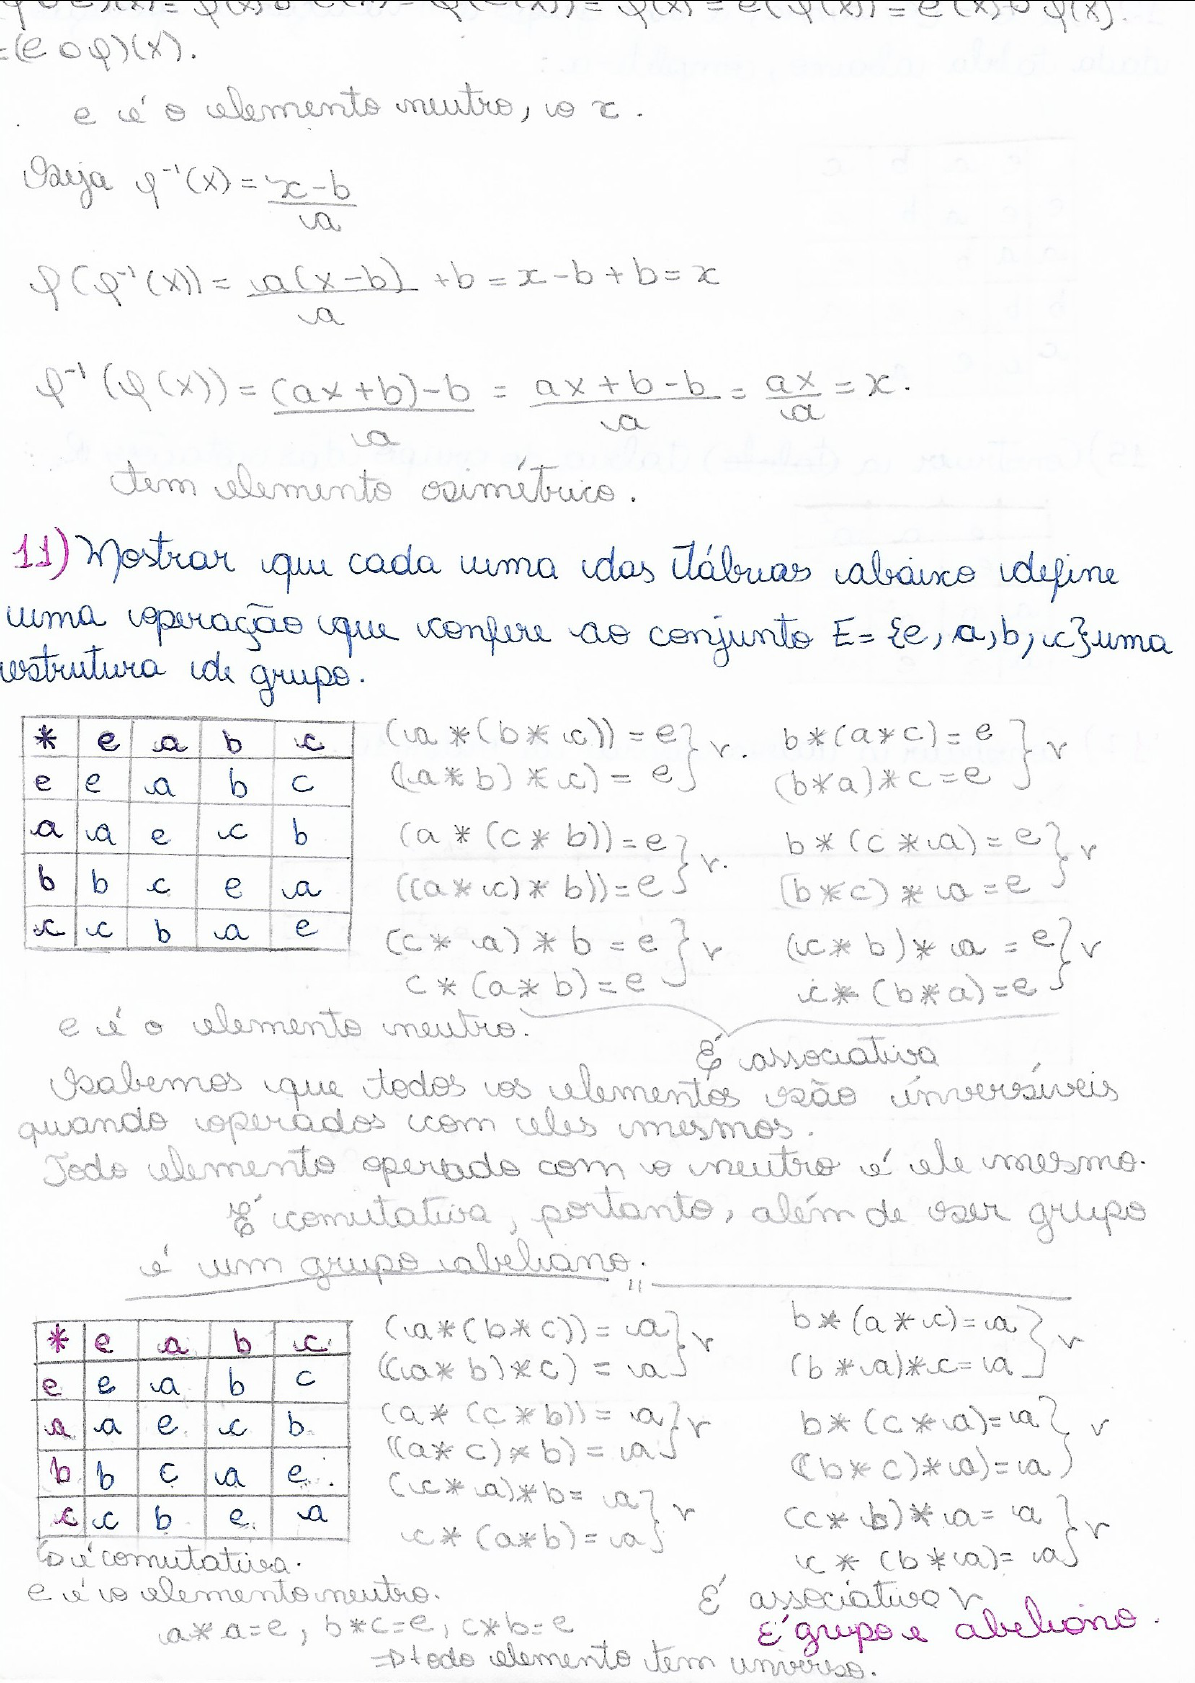 =(e o φ)(x).
e é o elemento neutro, o x.
Seja φ⁻¹(x) = x-b
a
φ(φ⁻¹(x)) = a(x-b) + b = x-b+b = x
a
φ⁻¹(φ(x)) = (ax+b)-b = ax+b-b = ax = x.
a a a
tem elemento simétrico.
11) Mostrar que cada uma das tábuas abaixo define
uma operação que confere ao conjunto E = {e, a, b, c} uma
estrutura de grupo.
* e a b c
e e a b c
a a e c b
b b c e a
c c b a e
(a*(b*c)) = e } v.
((a*b)*c) = e
(a*(c*b)) = e } v.
((a*c)*b)) = e
(c*a)*b = e } v
c*(a*b) = e
b*(a*c) = e } v
(b*a)*c = e
b*(c*a) = e } v
(b*c)*a = e
(c*b)*a = e } v
c*(b*a) = e
e é o elemento neutro.
É associativa
Sabemos que todos os elementos são inversíveis
quando operados com eles mesmos.
Todo elemento operado com o neutro é ele mesmo.
É comutativa, portanto, além de ser grupo
é um grupo abeliano.
* e a b c
e e a b c
a a e c b
b b c a e
c c b e a
(a*(b*c)) = a } v
((a*b)*c) = a
(a*(c*b)) = a } v
((a*c)*b) = a
(c*a)*b = a } v
c*(a*b) = a
b*(a*c) = a } v
(b*a)*c = a
b*(c*a) = a } v
((b*c)*a) = a
(c*b)*a = a } v
c*(b*a) = a
é comutativa.
e é o elemento neutro.
É associativa v
a*a=e, b*c=e, c*b=e
É grupo e abeliano.
⇒ todo elemento tem universo.